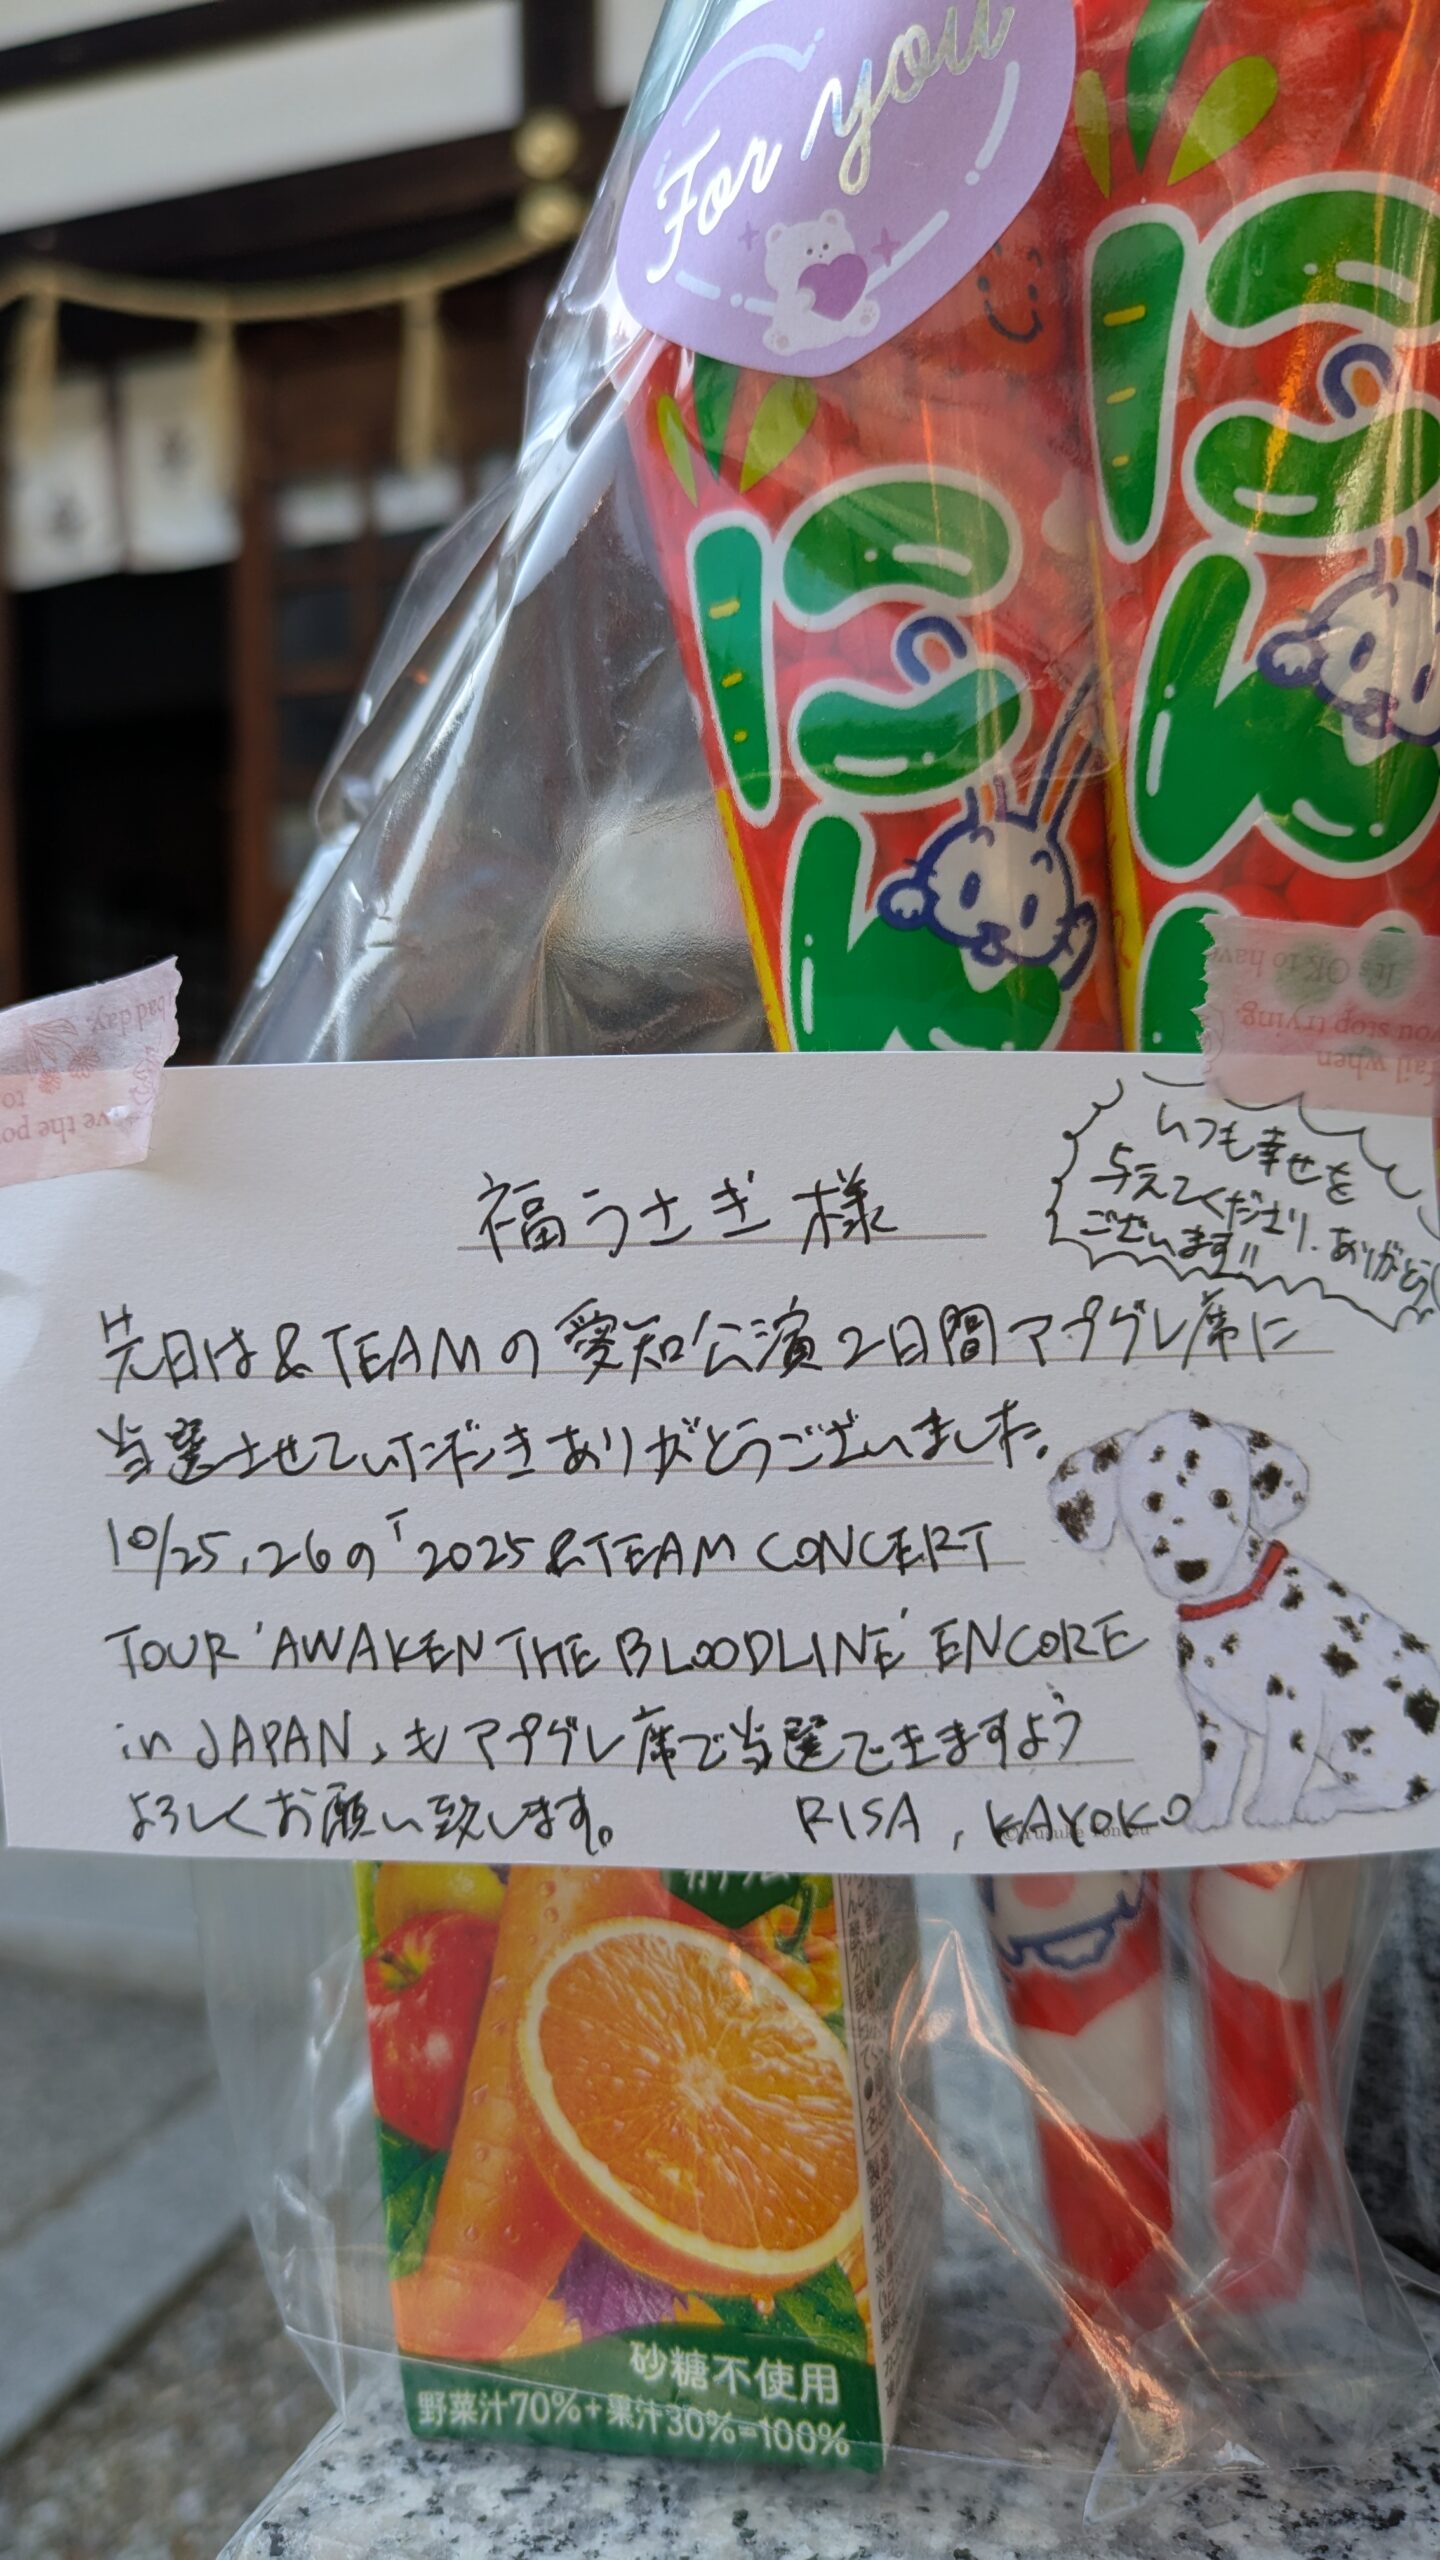 For you
にんじん
にん
いつも幸せを
与えてくださり、ありがとう
ございます!!
福うさぎ様
先日は&TEAMの愛知公演2日間アプグレ席に
当選させていただきありがとうございました。
10/25,26の「2025 &TEAM CONCERT
TOUR 'AWAKEN THE BLOODLINE' ENCORE
in JAPAN」もアプグレ席で当選できますよう
よろしくお願い致します。 RISA, KAYOKO
bad day.
ve the po
to
It's OK to have
you stop trying.
fail when
砂糖不使用
野菜汁70%+果汁30%=100%